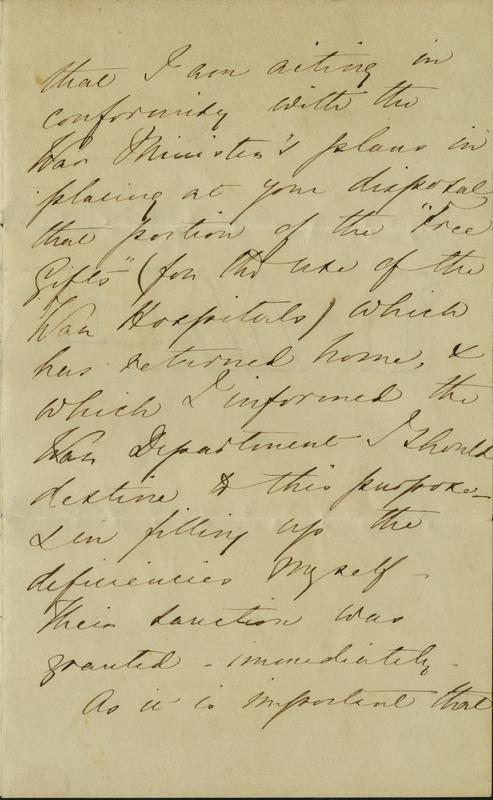 that I am acting in
conformity with the
War Minister's plans in
placing at your disposal
that portion of the "Free
Gifts" (for the use of the
War Hospitals) which
has returned home, &
which I informed the
War Department I should
destine to this purpose -
& in filling up the
deficiencies myself -
Their sanction was
granted - immediately -
As it is important that